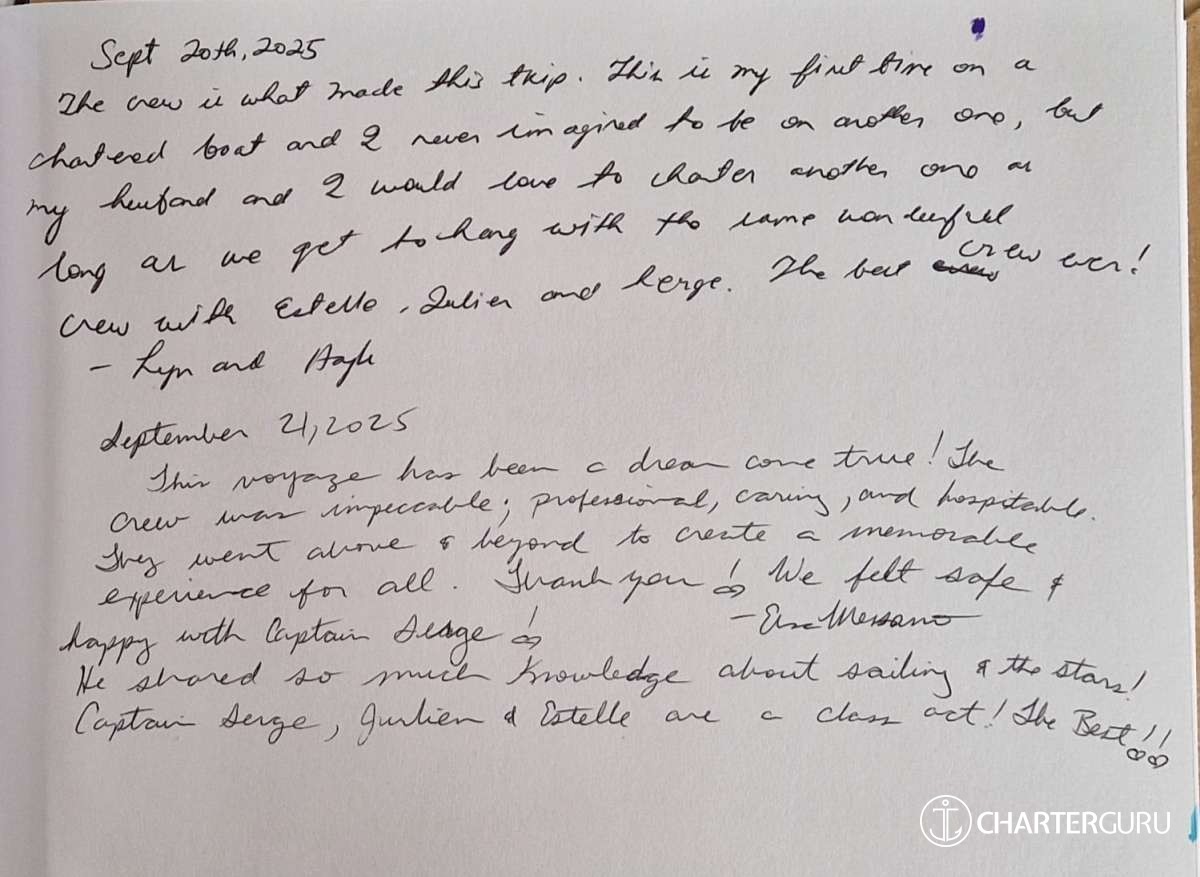 Sept 20th, 2025
The crew is what made this trip. This is my first time on a
chartered boat and I never imagined to be on another one, but
my husband and I would love to charter another one as
long as we get to hang with the same wonderful
crew with Estelle, Julien and Serge. The best crew ever!
- Lyn and
September 21, 2025
This voyage has been a dream come true! The
crew was impeccable; professional, caring, and hospitable.
They went above & beyond to create a memorable
experience for all. Thank you! We felt safe &
happy with Captain Serge!
He shared so much knowledge about sailing & the stars!
Captain Serge, Jurlien & Estelle are a class act! The Best!!
CHARTERGURU